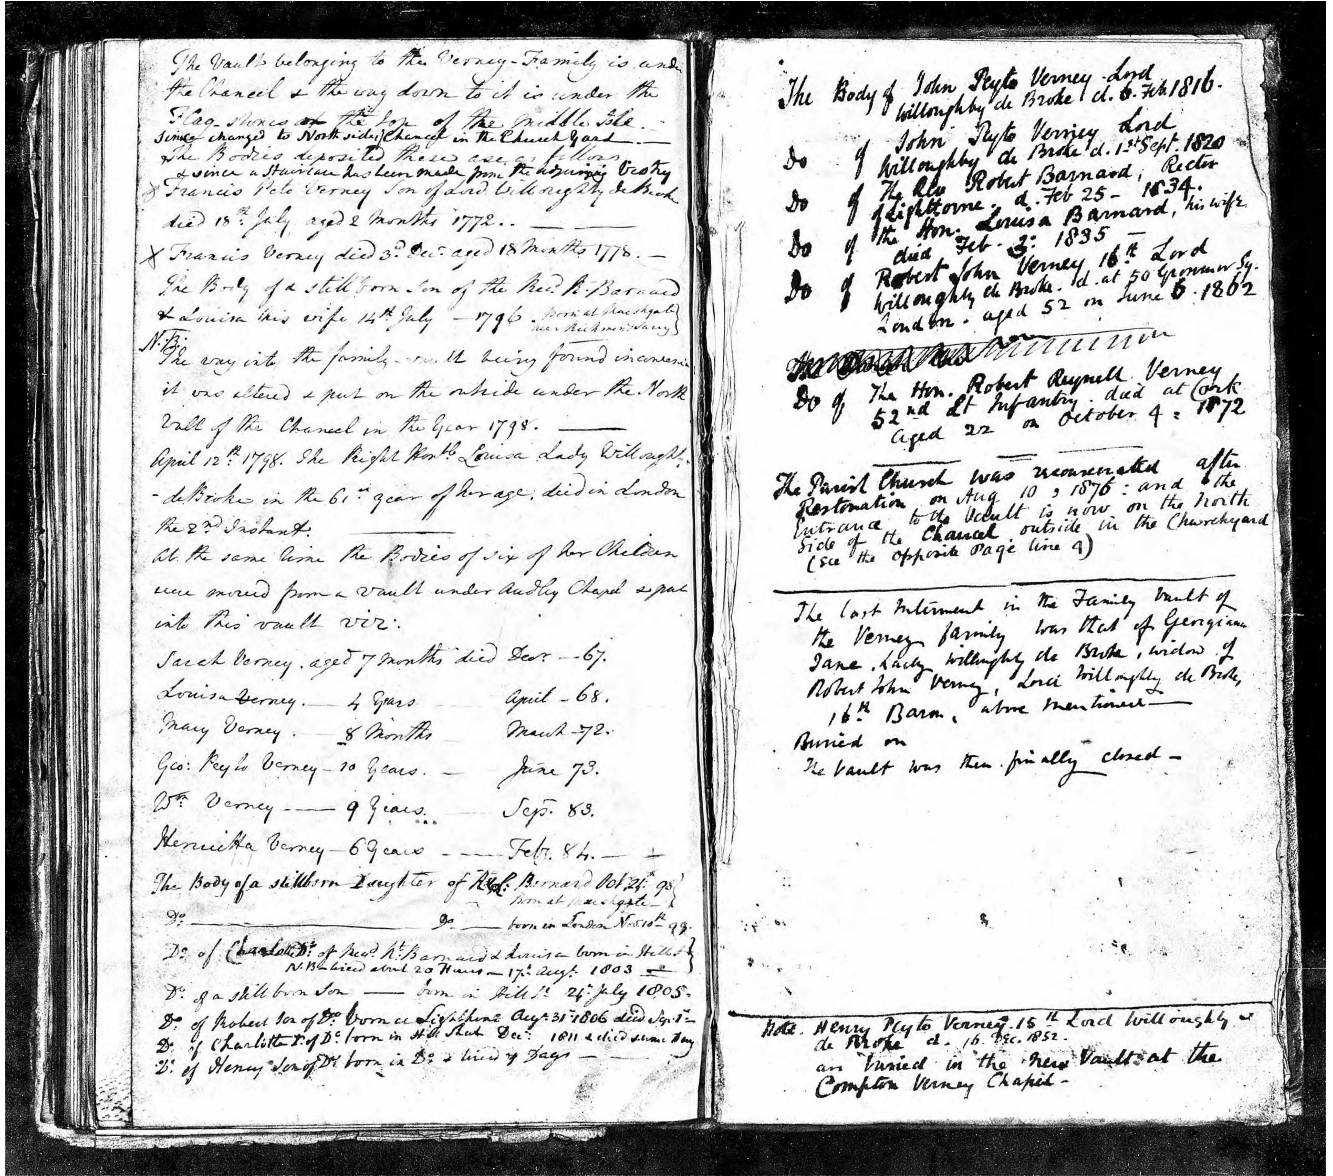 The Vault belonging to the Verney-Family is under
the Chancel & the way down to it is under the
Flag stones on the top of the Middle Isle.
Since changed to North side/Chancel in the Church Yard
The Bodies deposited there are as follows
& since a Staircase has been made from the adjoining Vestry
X Francis Peto Verney Son of Lord Willoughby de Broke
died 18th July aged 2 Months 1772.
X Francis Verney died 3d Decr aged 18 Months 1778. —
The Body of a stillborn Son of the Revd R. Barnard
& Louisa his wife 14th July — 1796. born at Marshgate
near Richmond Surry
N.B.
The way into the family-vault being found inconvenient
it was altered & put on the outside under the North
Wall of the Chancel in the Year 1798. —
April 12th 1798. The Right Honble Louisa Lady Willoughby
- de Broke in the 61st year of her age; died in London
the 2nd Instant.
At the same time the Bodies of six of her Children
were moved from a vault under Audley Chapel & put
into this vault viz:
Sarah Verney. aged 7 months died Decr — 67.
Louisa Verney. — 4 Years April - 68.
Mary Verney. — 8 Months March - 72.
Geo: Peyto Verney — 10 Years. — June 73.
Wm Verney — 9 Years. Sepr. 83.
Henrietta Verney — 6 Years — Feby. 84. —
The Body of a stillborn Daughter of Barnard Oct 24th 98
born at Marshgate —
Do — Do — born in London Nov 10th 99.
Do of Charlotte Dr of Revd Rt Barnard & Louisa born in Hill St
N.B. lived about 20 Hours — 17th Augt 1803 —
Do of a stillborn Son — born in Hill St 24th July 1805.
Do of Robert Son of Do born at Lighthorne Augt 31st 1806 died Sepr 1st
Do of Charlotte D. of Do born in Hill Street Decr 1811 & died same Day
Do of Henry Son of Do born in Do & lived 9 Days —
The Body of John Peyto Verney Lord
Willoughby de Broke d. 6 Feb. 1816.
Do of John Peyto Verney Lord
Willoughby de Broke d. 1st Sept. 1820
Do of The Rev Robert Barnard, Rector
of Lighthorne. d. Feb 25 - 1834.
Do of the Hon. Louisa Barnard, his wife
died Feb. 3: 1835 —
Do of Robert John Verney 16th Lord
Willoughby de Broke. d. at 50 Grosvenor Sq.
London. aged 52 on June 5. 1862
Do of The Hon. Robert Reynell Verney
52nd Lt Infantry. died at Cork
aged 22 on October 4 = 1872
The Parish Church was reconsecrated after
Restoration on Aug 10, 1876: and the
Entrance to the Vault is now on the North
Side of the Chancel, outside in the Churchyard
(See the opposite Page line 4)
The last Interment in the Family Vault of
the Verney family was that of Georgiana
Jane, Lady Willoughby de Broke, widow of
Robert John Verney, Lord Willoughby de Broke,
16th Baron, above mentioned —
Buried on
The Vault was then finally closed —
Note. Henry Peyto Verney. 15th Lord Willoughby
de Broke d. 16. Dec. 1852.
are buried in the new Vault at the
Compton Verney Chapel -